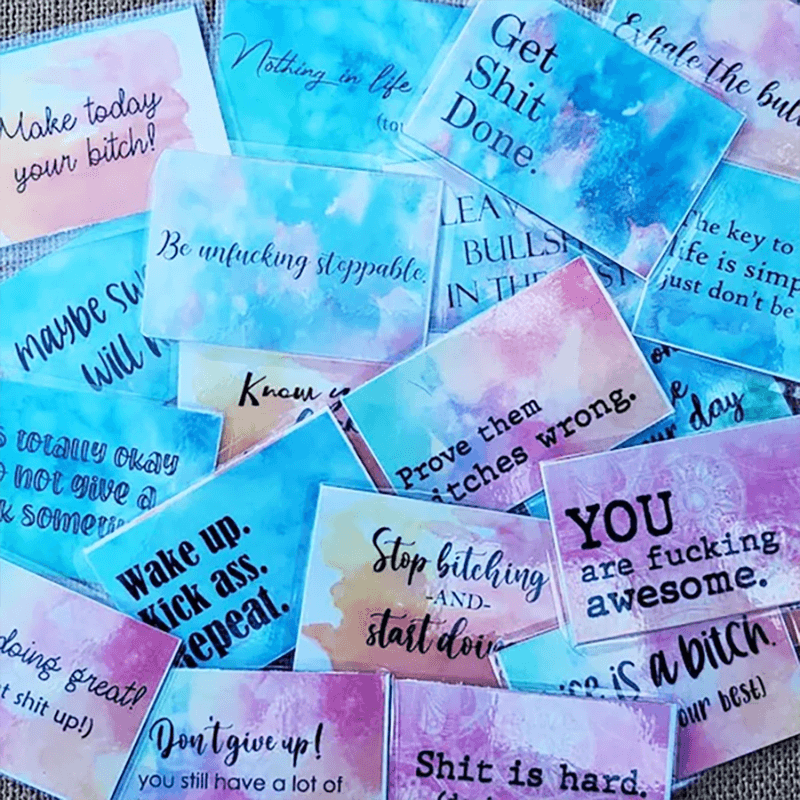 Make today
your bitch!
Nothing in life
Get
Shit
Done.
Exhale the
Be unfucking stoppable.
IN
The key to
life is
just don't be
maybe
will
Know
Prove them
wrong.
day
totally okay
not give a
Wake up.
Kick ass.
Repeat.
Stop bitching
-AND-
start
YOU
are fucking
awesome.
doing great!
shit up!)
is a bitch.
our best)
Don't give up!
you still have a lot of
Shit is hard.